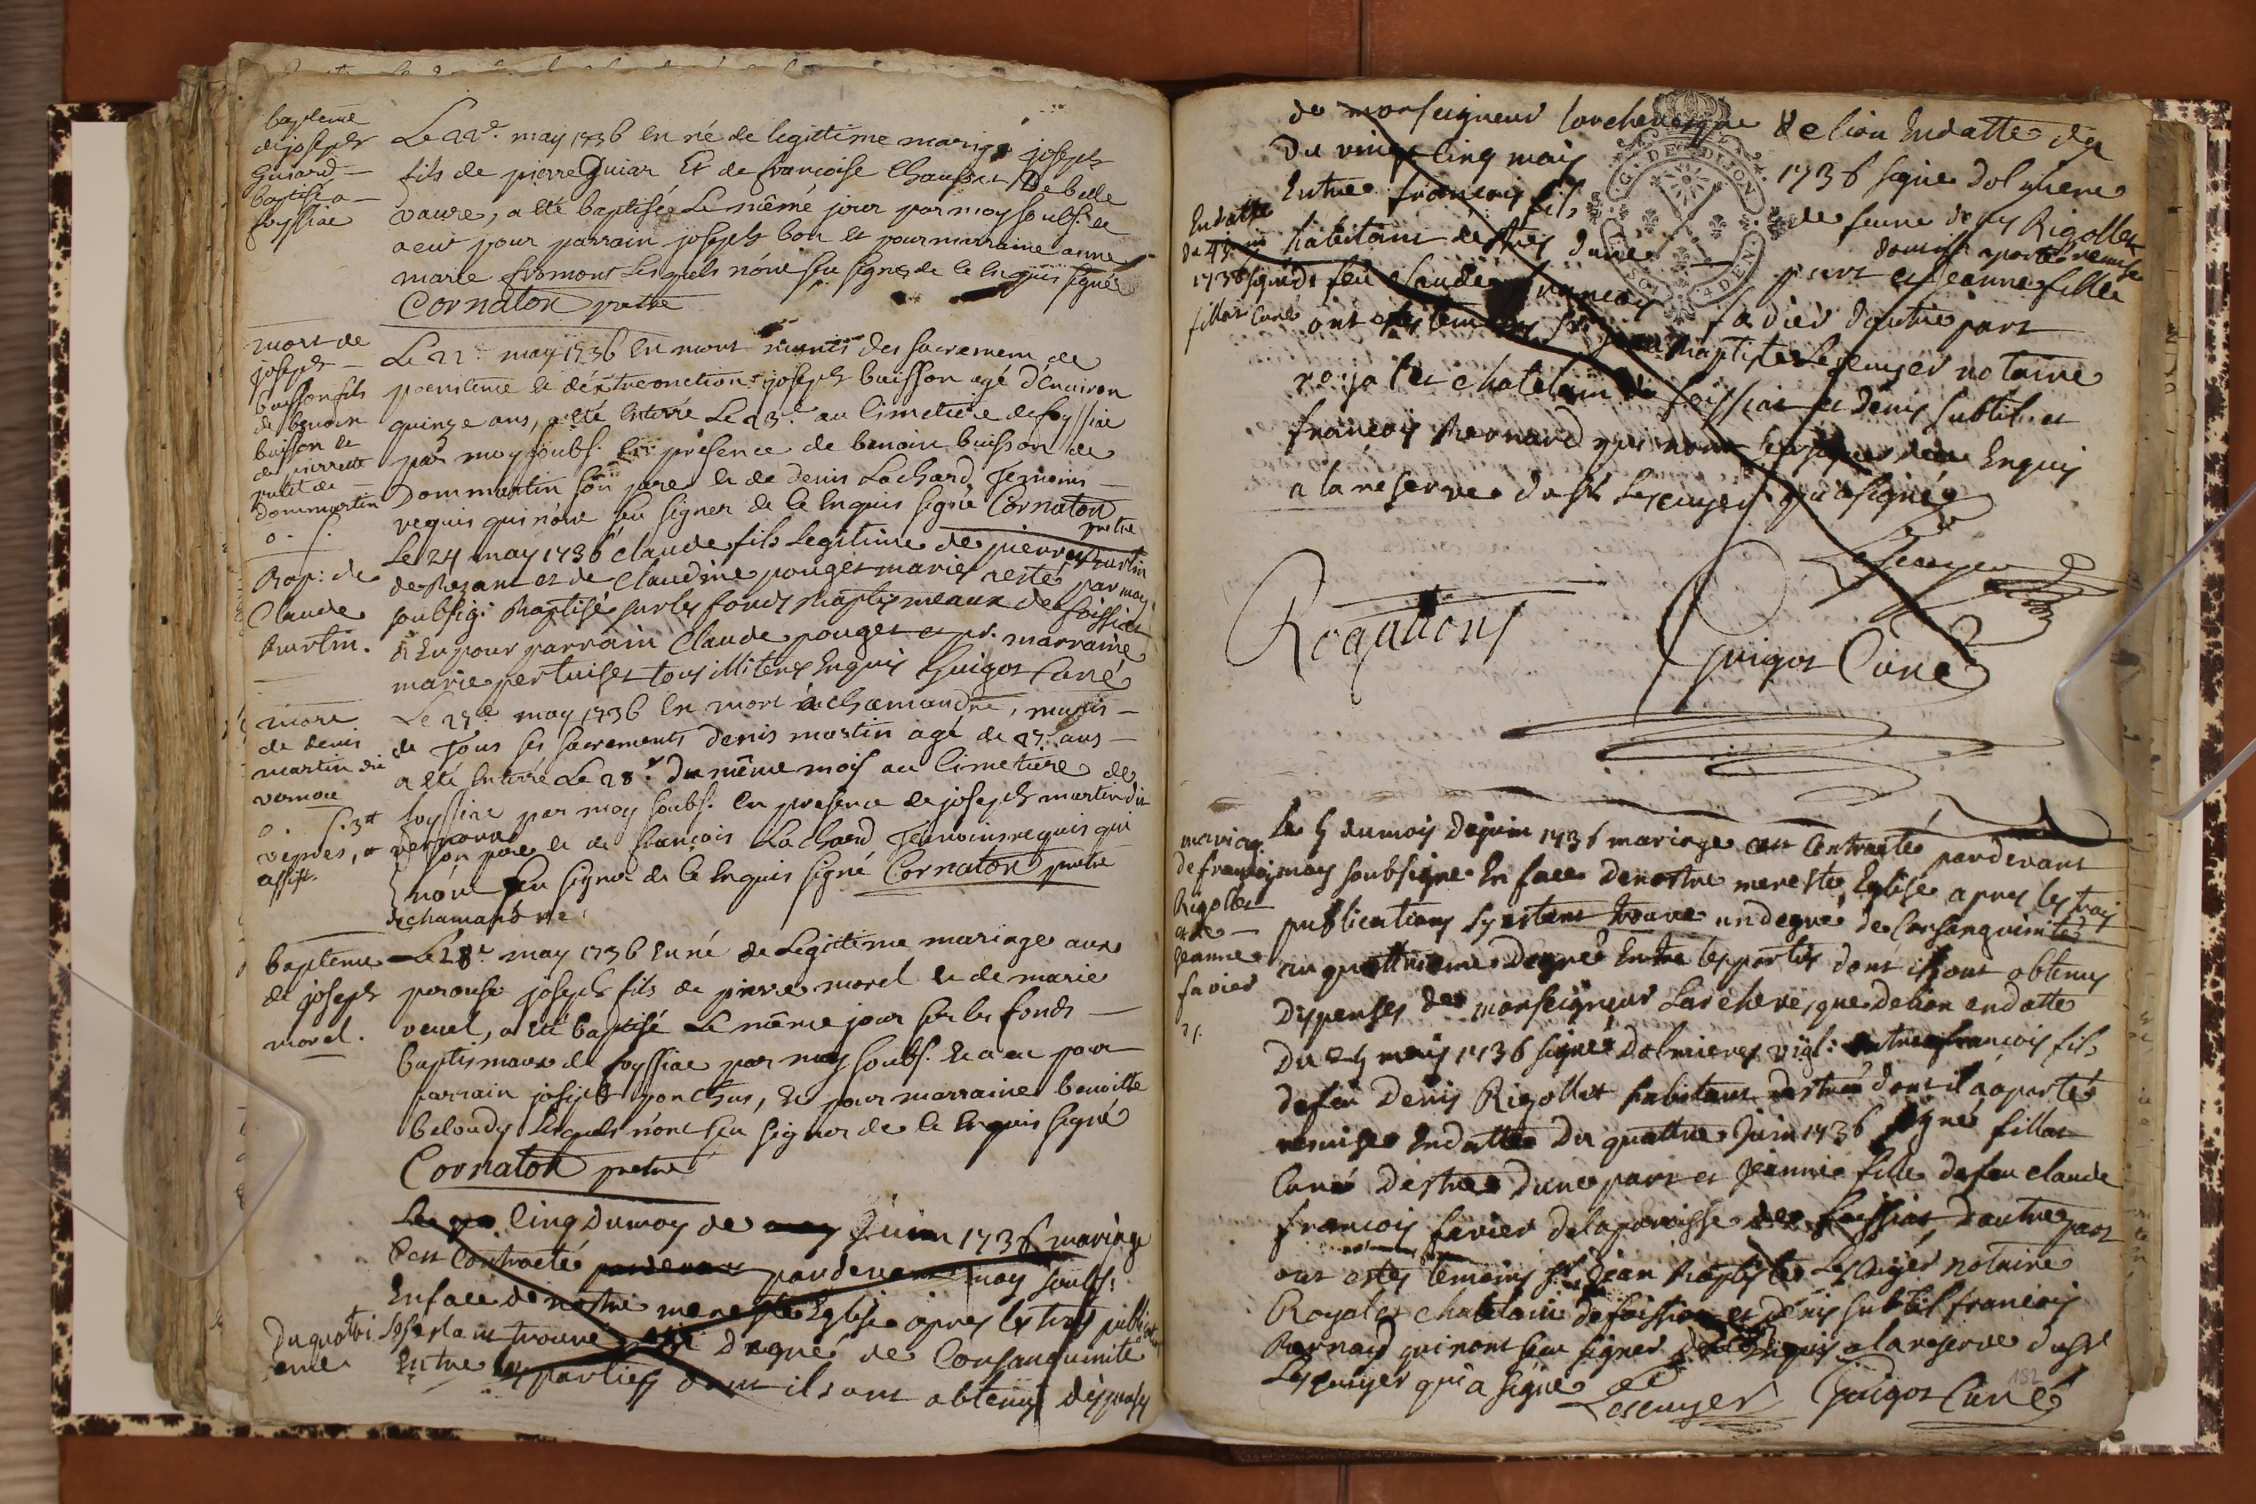 bapteme
de joseph
Guiard
baptisé a
foyssiac
Le 22e. may 1736 en né de legittime mariage joseph
fils de pierre Guiar Et de francoise De belle
vavre, a eté baptisé Le même jour par moy soubs. et
a eu pour parrain joseph bon et pour marraine anne
marie fromont Lesquels n'ont seu signer de ce Enquis signé
Cornaton pretre
mort de
joseph
buisson fils
de benoit
buisson et
de pierrette
de
dommartin
Le 22e may 1736 en mort munis des sacremens de
penitence et d'extreonction joseph buisson agé d'Environ
quinze ans, a eté enterré Le 23e. au Cimetiere de foyssiac
par moy soubs. En présence de benoit buisson de
Dommartin son pere et de denis Lachard, Temoins
requis qui n'ont seu signer de ce enquis signé Cornaton
pretre
Bap: de
Claude
burtin.
Le 24 may 1736 claude fils Legitime de pierre burtin
de et de Claudine pouget mariés resté par moy
soubsig: Baptisé sur les fonds Baptismeaux de foissiat
à Eu pour parrain Claude pouget et pr. marraine
marie pertuiset tous illiterés Enquis Guigot Curé
mort
de denis
martin dit
vernou
vepres, a
assist.
Le 27e may 1736 en mort a chamandre, munis
de Tous ses sacrements Denis martin agé de 27 ans
a eté enterré Le 28e. Du même mois au Cimetiere de
foyssiac par moy soubs. En presence de joseph martin dit
vernoux son pere et de francois Lachard Temoins requis qui
n'ont seu signer de ce enquis signé Cornaton pretre
de chamandre
bapteme
de joseph
morel.
Le 28e may 1736 en né de Legittime mariage aux
perouse joseph fils de pierre morel et de marie
veuel, a eté baptisé Le même jour sur les fonds
baptismaux de foyssiac par moy soubs. Et a eu pour
parrain joseph ponthus, et pour marraine benoitte
beloudy Lesquels n'ont seu signer de ce enquis signé
Cornaton pretre
Le cinq Du moy de juin 1736 mariage
a été Contracté pardevant moy soubs:
En face de nostre mere ste Eglise apres les trois publicat
du quatri
eme
S'estant trouvé un Degré de Consanguinité
Entre les parties dont ils ont obtenus dispenses
de monseigneur Larchevesque de lion En datte du
Du vingt cinq may 1736 signé dolmiere
Entre françois fils de feu denis Rigollet
dont il a porté remise
En datte
du 4 juin
1736 signé
fillat Curé
habitant destrés dune part et Jeanne fille
de feu claude francois favier dautre part
ont estés temoins Sr. jean Baptiste Lescuyer notaire
royal et chatelain de foissiat et denis subtil et
françois Bernard qui nont seu signer de ce Enquis
a la reserve du Sr Lescuyer qui a signé
Lescuyer
Guigot Curé
mariage
de françois
Rigollet
et de
Jeanne
favier
Le 5 du mois de juin 1736 mariage a été Contracté pardevant
moy soubsigné En face de nostre mere ste Eglise apres les trois
publications sy estant trouvé un degré de Consanguinité
au quattrieme Degré Entre les parties dont ils ont obtenus
Dispenses de monseigneur Larchevesque de lion en datte
Du 25 may 1736 signé Dolmieres vigl: entre francois fils
de feu Denis Rigollet habitant destré dont il a aporté
remise En datte Du quattre juin 1736 signé fillat
Curé destrés dune part et Jeanne fille de feu claude
francois favier de la paroisse de foissiat dautre part
ont estés temoins Sr. Jean Baptiste Lescuyer notaire
Royal et chatelain de foissiat et denis subtil francois
Bernard qui nont seu signer de ce enquis a la reserve du Sr
Lescuyer qui a signé Lescuyer Guigot Curé
152